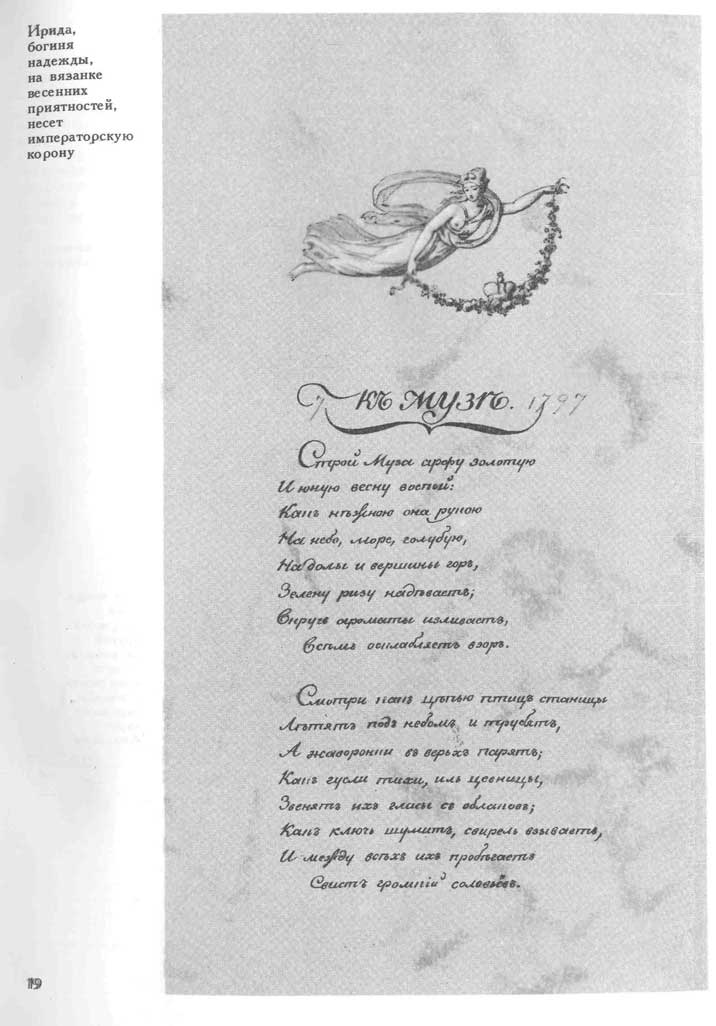 Ирида,
богиня
надежды,
на вязанке
весенних
приятностей,
несет
императорскую
корону
7 КЪ МУЗѢ. 1797
Строй Муза арфу золотую
И юную весну воспой:
Какъ нѣжною она рукою
На небо, море, голубую,
На долы и вершины горъ,
Зелену ризу надѣваетъ;
Вкругъ ароматы изливаетъ,
Всѣмъ осклабляетъ взоръ.
Смотри какъ цѣпью птицъ станицы
Лѣтятъ подъ небомъ и трубятъ,
А жаворонки въ верьхъ парятъ;
Какъ гусли тихи, иль цевницы,
Звенятъ ихъ гласы съ облаковъ;
Какъ ключь шумитъ, свирель взываетъ,
И между всѣхъ ихъ пробѣгаетъ
Свистъ громкій соловьёвъ.
19